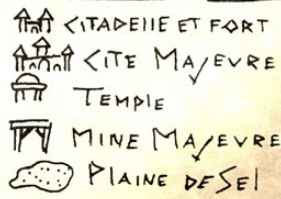 CITADELLE ET FORT
CITE MAJEVRE
TEMPLE
MINE MAJEVRE
PLAINE DE SEL